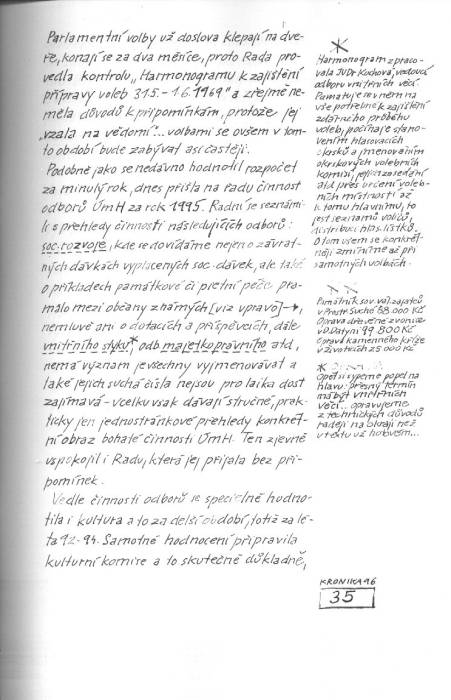 Parlamentní volby už doslova klepají na dve-
ře, konají se za dva měsíce, proto Rada pro-
vedla kontrolu „Harmonogramu k zajištění
přípravy voleb 31.5. - 1.6.1969" a zřejmě ne-
měla důvodů k připomínkám, protože jej
„vzala na vědomí"... volbami se ovšem v tom-
to období bude zabývat asi častěji.
Podobně jako se nedávno hodnotil rozpočet
za minulý rok, dnes přišla na řadu činnost
odborů ÚmH za rok 1995. Radní se seznámi-
li s přehledy činností následujících odborů:
soc. rozvoje, kde se dovídáme nejen o závrat-
ných dávkách vyplacených soc. dávek, ale také
o příkladech památkové či pietní péče pra-
málo mezi občany známých [viz vpravo]→,
nemluvě ani o dotacích a příspěvcích, dále
vnitřního styku,* odb. majetkoprávního atd,
nemá význam je všechny vyjmenovávat a
také jejich suchá čísla nejsou pro laika dost
zajímavá - vcelku však dávají stručné, prak-
ticky jen jednostránkové přehledy konkrét-
ní obraz bohaté činnosti ÚmH. Ten zjevně
uspokojil i Radu, která jej přijala bez při-
pomínek.
Vedle činnosti odborů se speciálně hodno-
tila i kultura a to za delší období, totiž za lé-
ta 92-94. Samotné hodnocení připravila
kulturní komise a to skutečně důkladně,
*
Harmonogram zpraco-
vala JUDr Kuchová, vedoucí
odboru vnitřních věcí.
Pamatuje se v něm na
vše potřebné k zajištění
zdárného průběhu
voleb, počínaje stano-
vením hlasovacích
okrsků a jmenováním
okrskových volebních
komisí, jejich zasedání
atd přes určení voleb-
ních místností až
k tomu hlavnímu, to
jest seznamů voličů,
distribuci hlas. lístků.
O tom všem se konkrét-
něji zmíníme až při
samotných volbách.
**
Památník sov. zajatců
v Prostř. Suché 68 000 Kč
Oprava dřevěné zvonice
v D. Datyni 99 800 Kč
Oprava kamenného kříže
v Životicích 25 000 Kč
*
Opět si sypeme popel na
hlavu: přesný termín
má být vnitřních
věcí... opravujeme
z technických důvodů
raději na okraji než
v textu už hotovém...
KRONIKA 96
35